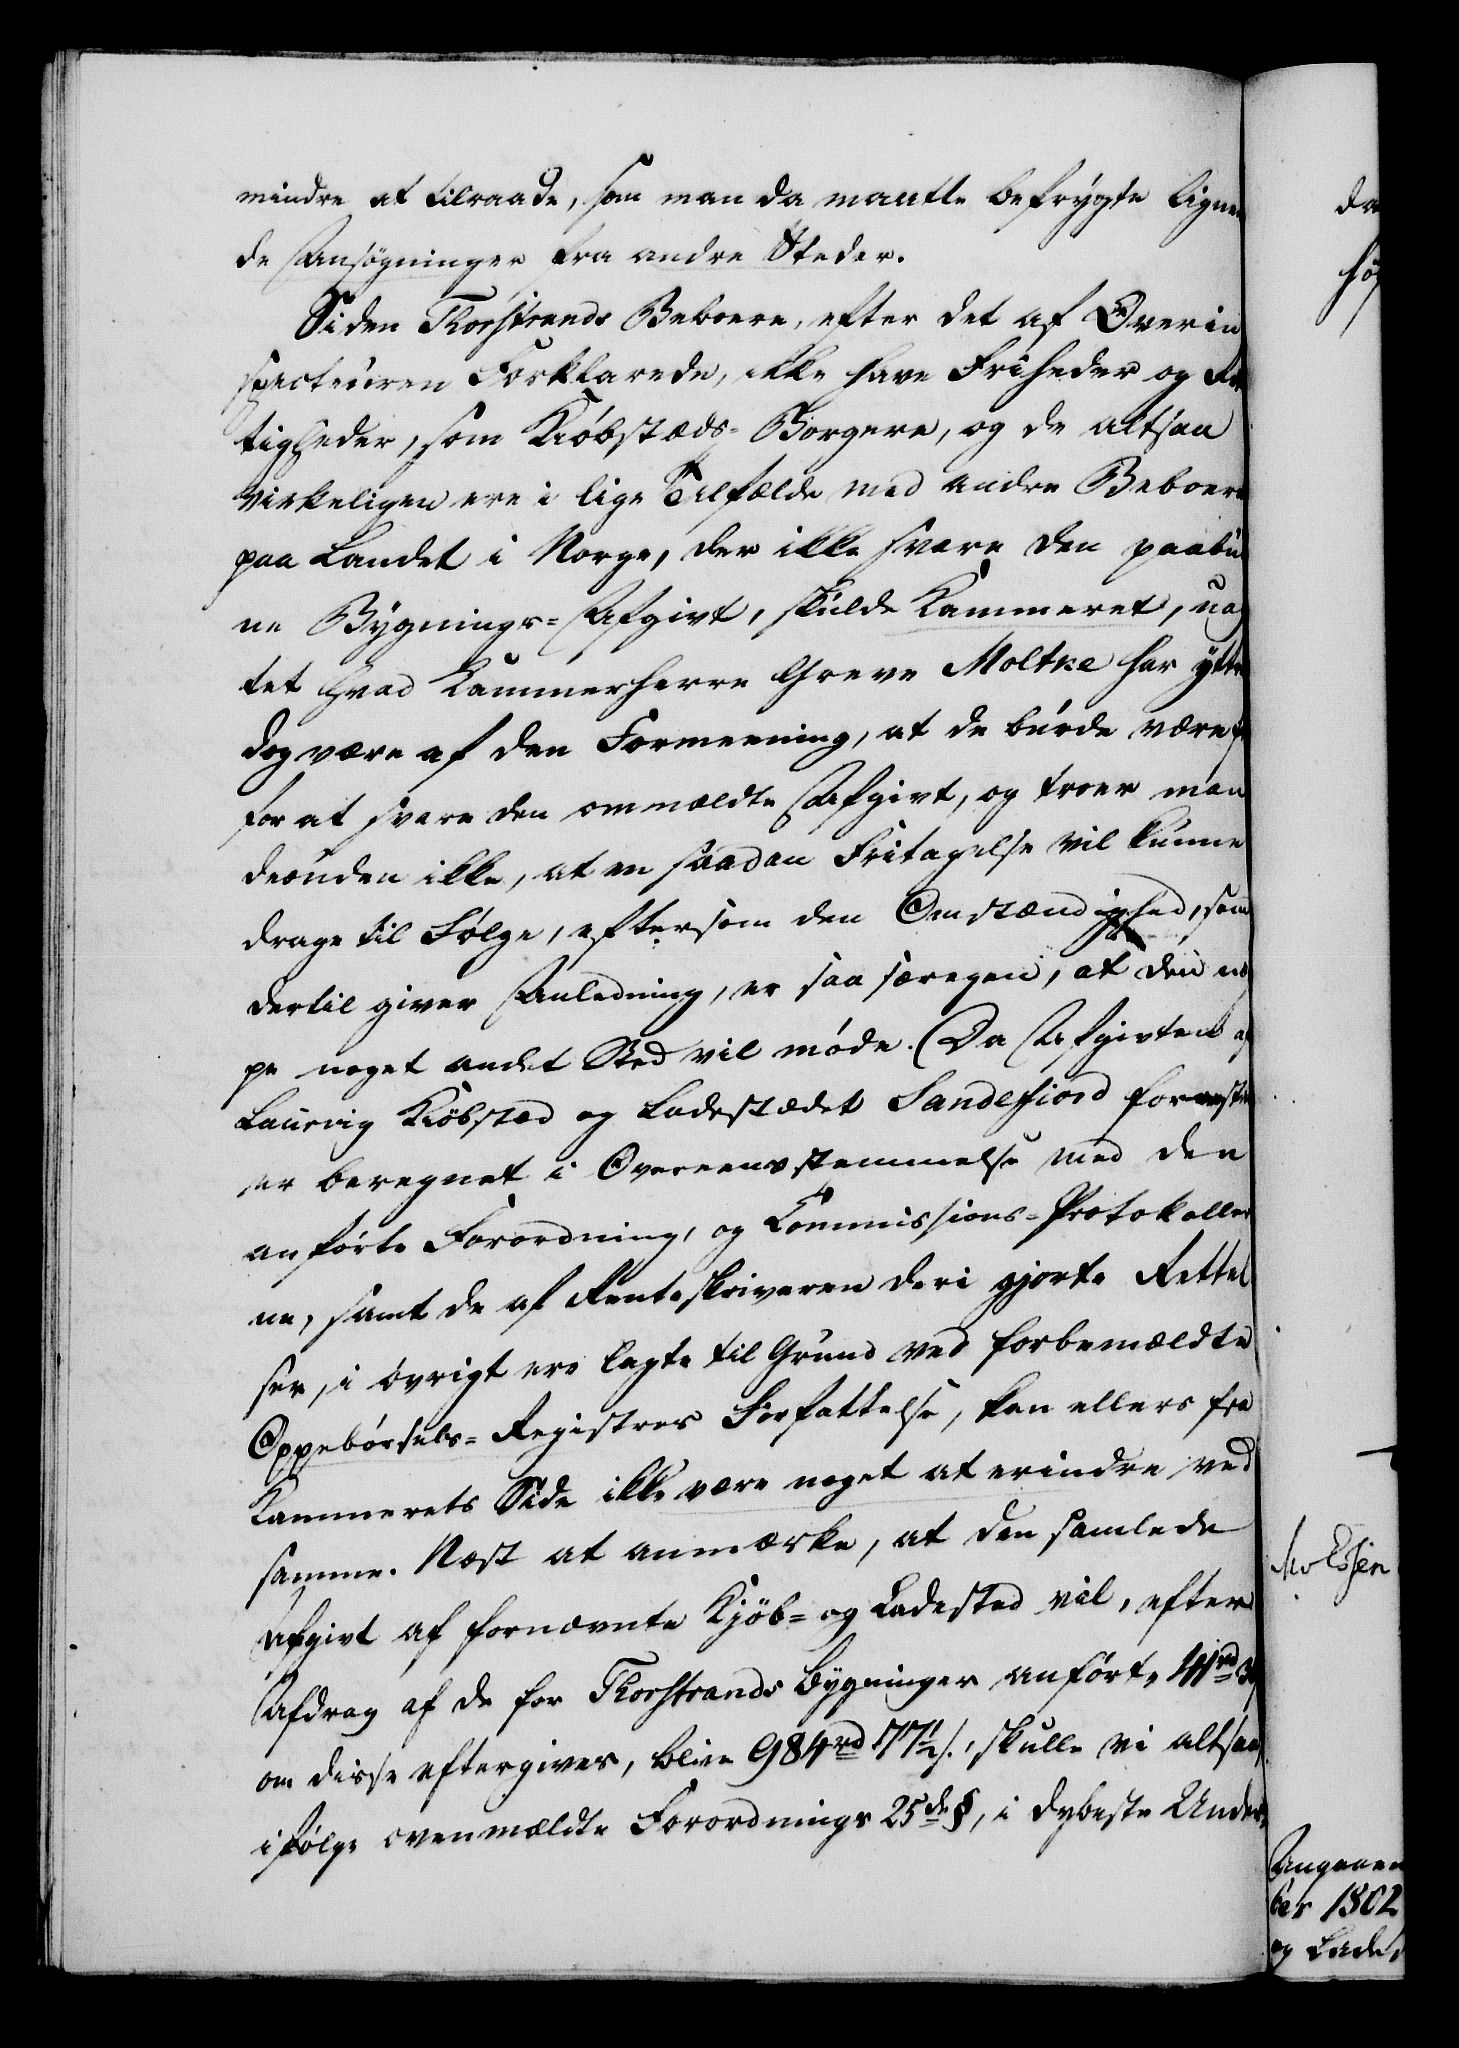 mindre at tilraade, som man da maatte befrygte lignen
de Ansøgninger fra andre Steder.
Siden Thorstrands Beboere, efter det af Overin
specteuren Forklarede, ikke have Friheder og Ret
tigheder, som Kiöbstæds-Borgere, og de altsaa
virkeligen ere i lige Tilfælde med andre Beboere
paa Landet i Norge, der ikke svare den paabud
ne Bygnings-Afgivt, skulde Kammeret, uag
tet hvad Kammerherre Greve Moltke har yttret
dog være af den Formeening, at de burde være f
for at svare den ommeldte Afgivt, og troer man
desuden ikke, at en saadan Fritagelse vil kunne
drage til Følge, eftersom den Omstændighed, som
dertil giver Anledning, er saa særegen, at den nep
pe noget andet Sted vil møde. Da Afgivten af
Laurvig Kiöbsted og Ladestædet Sandefiord forresten
er beregnet i Overeensstemmelse med den
anførte Forordning, og Commissions-Protokoller
ne, samt de af Renteskriveren deri gjorte Rettel
ser, i øvrigt ere lagte til Grund ved forbemældte
Oppebørsels-Registres Forfattelse, kan ellers fra
Kammerets Side ikke være noget at erindre ved
samme. Næst at anmærke, at den samlede
Afgivt af fornævnte Kjöb- og Ladested vil, efter
Afdrag af de for Thorstrands Bygninger anførte 41 rd
om disse eftergives, blive 984 rd 77½ s., skulle vi altsaa,
ifølge ovenmældte Forordnings 25de §, i dybeste Under-
da
hø
Essen
Angaaen
ber 1802
og Lade